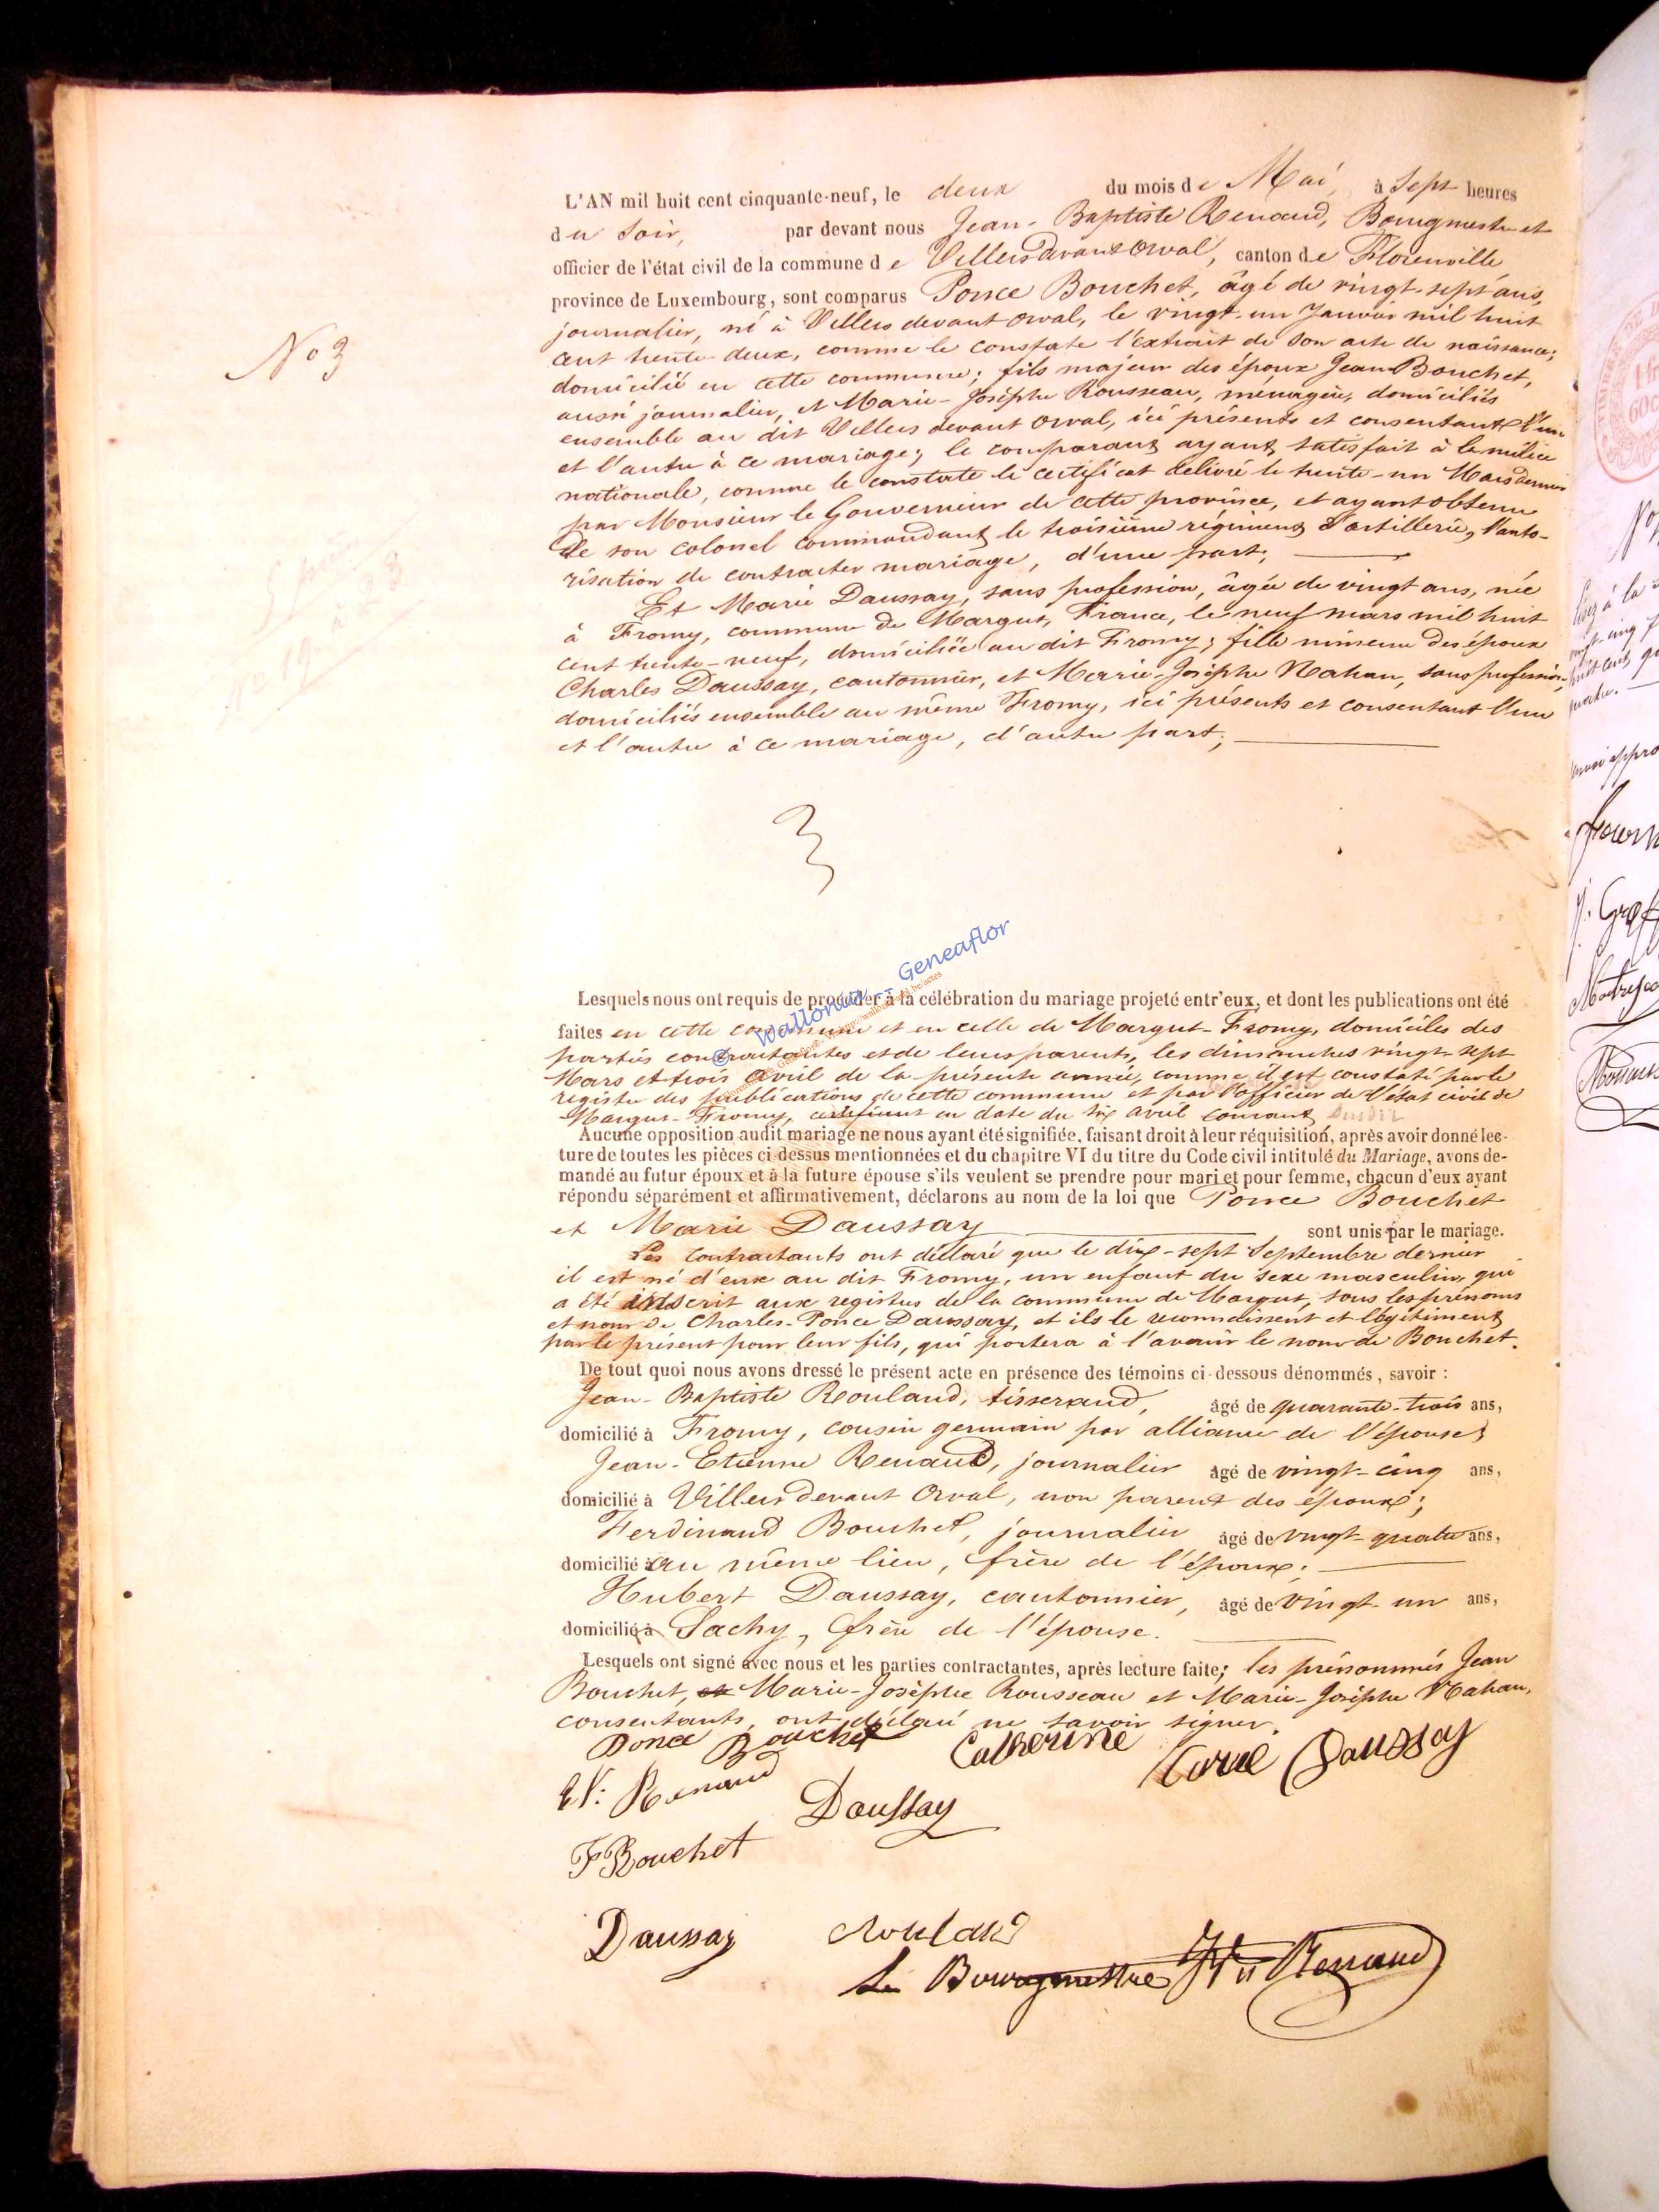 N° 3
L'AN mil huit cent cinquante-neuf, le deux du mois de Mai, à Sept heures
du Soir, par devant nous Jean-Baptiste Renaud, Bourgmestre et
officier de l'état civil de la commune de Villers devant Orval, canton de Florenville
province de Luxembourg, sont comparus Ponce Bouchet, âgé de vingt-sept ans,
journalier, né à Villers devant Orval, le vingt-un Janvier mil huit
cent trente-deux, comme le constate l'extrait de son acte de naissance;
domicilié en cette commune; fils majeur des époux Jean Bouchet,
aussi journalier, et Marie-Josèphe Rousseau, ménagère, domiciliés
ensemble au dit Villers devant Orval, ici présents et consentant l'un
et l'autre à ce mariage; le comparant ayant satisfait à la milice
nationale, comme le constate le certificat délivré le trente-un Mars dernier
par Monsieur le Gouverneur de cette province, et ayant obtenu
de son colonel commandant le troisième régiment d'artillerie, l'auto-
risation de contracter mariage, d'une part;
Et Marie Daussay, sans profession, âgée de vingt ans, née
à Fromy, commune de Margut, France, le neuf mars mil huit
cent trente-neuf, domiciliée au dit Fromy; fille mineure des époux
Charles Daussay, cantonnier, et Marie-Josèphe Mahau, sans profession,
domiciliés ensemble au même Fromy, ici présents et consentant l'un
et l'autre à ce mariage, d'autre part;
3
© Wallonia -- Geneaflor
Lesquels nous ont requis de procéder à la célébration du mariage projeté entr'eux, et dont les publications ont été
faites en cette commune et en celle de Margut-Fromy, domiciles des
parties contractantes et de leurs parents, les dimanches vingt-sept
Mars et trois avril de la présente année, comme il est constaté par le
registre des publications de cette commune et par l'officier de l'état civil de
Margut-Fromy, certificat en date du six avril courant
Aucune opposition audit mariage ne nous ayant été signifiée, faisant droit à leur réquisition, après avoir donné lec-
ture de toutes les pièces ci-dessus mentionnées et du chapitre VI du titre du Code civil intitulé du Mariage, avons de-
mandé au futur époux et à la future épouse s'ils veulent se prendre pour mari et pour femme, chacun d'eux ayant
répondu séparément et affirmativement, déclarons au nom de la loi que Ponce Bouchet
et Marie Daussay sont unis par le mariage.
Les contractants ont déclaré que le dix-sept Septembre dernier
il est né d'eux au dit Fromy, un enfant du sexe masculin, qui
a été inscrit aux registres de la commune de Margut, sous les prénoms
et nom de Charles-Ponce Daussay, et ils le reconnaissent et légitiment
par le présent pour leur fils, qui portera à l'avenir le nom de Bouchet.
De tout quoi nous avons dressé le présent acte en présence des témoins ci-dessous dénommés, savoir :
Jean-Baptiste Rouland, tisserand, âgé de quarante-trois ans,
domicilié à Fromy, cousin germain par alliance de l'épouse;
Jean-Etienne Renaud, journalier âgé de vingt-cinq ans,
domicilié à Villers devant Orval, non parent des époux;
Ferdinand Bouchet, journalier âgé de vingt-quatre ans,
domicilié à au même lieu, frère de l'époux;
Hubert Daussay, cantonnier, âgé de vingt-un ans,
domicilié à Sachy, frère de l'épouse.
Lesquels ont signé avec nous et les parties contractantes, après lecture faite; les prénommés Jean
Bouchet, et Marie-Josèphe Rousseau et Marie-Josèphe Mahau,
consentants, ont déclaré ne savoir signer.
Ponce Bouchet Catherine Marie Daussay
Et: Renaud Daussay
F Bouchet
Daussay Rouland
Le Bourgmestre JBte Renaud